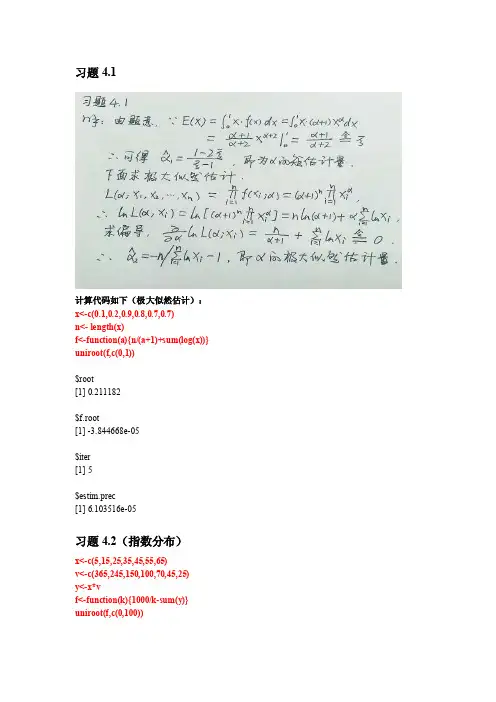 习题 4.1
习题4.1
解: 由题意, ∵ E(X) = ∫₀¹ x·f(x) dx = ∫₀¹ x·(α+1) x^α dx
= (α+1)/(α+2) x^(α+2) |₀¹ = (α+1)/(α+2) 令= x̄
∴可得 α̂₁ = (1-2x̄)/(x̄-1), 即为α的矩估计量.
下面求极大似然估计.
L(α; x₁, x₂, ⋯, xₙ) = ∏ᵢ₌₁ⁿ f(xᵢ; α) = (α+1)ⁿ ∏ᵢ₌₁ⁿ xᵢ^α
∴ ln L(α; xᵢ) = ln[(α+1)ⁿ ∏ᵢ₌₁ⁿ xᵢ^α] = n ln(α+1) + α ∑ᵢ₌₁ⁿ ln xᵢ,
求偏导, ∂/∂α ln L(α; xᵢ) = n/(α+1) + ∑ᵢ₌₁ⁿ ln xᵢ 令= 0.
∴ α̂₂ = -n/∑ᵢ₌₁ⁿ ln xᵢ - 1, 即α的极大似然估计量.
计算代码如下（极大似然估计）：
x<-c(0.1,0.2,0.9,0.8,0.7,0.7)
n<- length(x)
f<-function(a){n/(a+1)+sum(log(x))}
uniroot(f,c(0,1))
$root
[1] 0.211182
$f.root
[1] -3.844668e-05
$iter
[1] 5
$estim.prec
[1] 6.103516e-05
习题 4.2（指数分布）
x<-c(5,15,25,35,45,55,65)
v<-c(365,245,150,100,70,45,25)
y<-x*v
f<-function(k){1000/k-sum(y)}
uniroot(f,c(0,100))